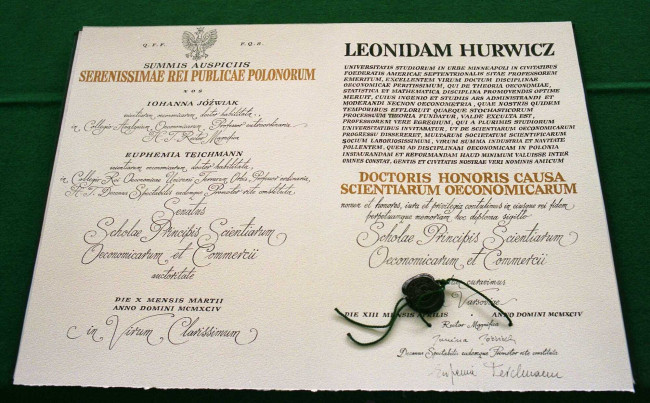 Q.F.F. F.Q.S.
SUMMIS AUSPICIIS
SERENISSIMAE REI PUBLICAE POLONORUM
NOS
IOHANNA JÓŹWIAK
scientiarum oeconomicarum doctor habilitata
in Collegio Analysium Oeconomicarum Professor extraordinaria
H.T. Rector Magnifica
EUPHEMIA TEICHMANN
scientiarum oeconomicarum doctor habilitata
in Collegio Rei Oeconomicae Professor extraordinaria
H.T. Decanus Spectabilis eademque Promotor rite constituta
Senatus
Scholae Principis Scientiarum
Oeconomicarum et Commercii
auctoritate
DIE X MENSIS MARTII
ANNO DOMINI MCMXCIV
in Virum Clarissimum
LEONIDAM HURWICZ
UNIVERSITATIS STUDIORUM IN URBE MINNEAPOLI IN CIVITATIBUS
FOEDERATIS AMERICAE SEPTENTRIONALIS SITAE PROFESSOREM
EMERITUM, EXCELLENTEM VIRUM DOCTUM DISCIPLINAE
OECONOMICAE PERITISSIMUM, QUI DE THEORIA OECONOMIAE,
STATISTICA ET MATHEMATICA DISCIPLINA PROMOVENDIS OPTIME
MERUIT, CUIUS INGENIO ET STUDIIS ARS ADMINISTRANDI ET
MODERANDI NECNON OECONOMETRIA, QUAE NOSTRIS QUIDEM
TEMPORIBUS EFFLORUIT QUAEQUE STOCHASTICORUM
PROCESSUUM THEORIA FUNDATUR, VALDE EXCULTA EST,
PROFESSOREM VERE EGREGIUM, QUI A PLURIMIS STUDIORUM
UNIVERSITATIBUS INVITABATUR, UT DE SCIENTIARUM OECONOMICARUM
PROGRESSU DISSERERET, MULTARUM SOCIETATUM SCIENTIFICARUM
SOCIUM LABORIOSISSIMUM, VIRUM SUMMA INDUSTRIA ET NAVITATE
POLLENTEM, QUEM AD DISCIPLINAM OECONOMICAM IN POLONIA
INSTAURANDAM ET REFORMANDAM HAUD MINIMUM VALUISSE INTER
OMNES CONSTAT, GENTIS ET CIVITATIS NOSTRAE VERI NOMINIS AMICUM
DOCTORIS HONORIS CAUSA
SCIENTIARUM OECONOMICARUM
nomen et honores, iura et privilegia contulimus in eiusque rei fidem
perpetuamque memoriam hoc diploma sigillo
Scholae Principis Scientiarum
Oeconomicarum et Commercii
curavimus
Varsoviae
DIE XIII MENSIS APRILIS ANNO DOMINI MCMXCIV
Rector Magnifica
Decanus Spectabilis eademque Promotor rite constituta
Teichmann